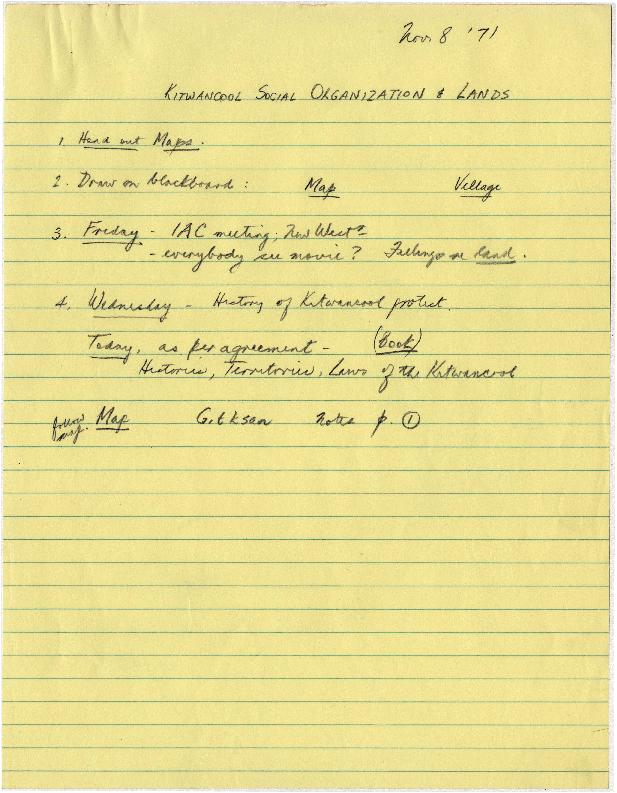 Nov. 8 '71
KITWANCOOL SOCIAL ORGANIZATION & LANDS
1. Hand out Maps.
2. Draw on blackboard : Map Village
3. Friday - IAC meeting; New West.
- everybody see movie? Feelings re land.
4. Wednesday - History of Kitwancool protest.
Today, as per agreement - (Book)
Histories, Territories, Laws of the Kitwancool
follow map. Map Gitksan Notes p. ①